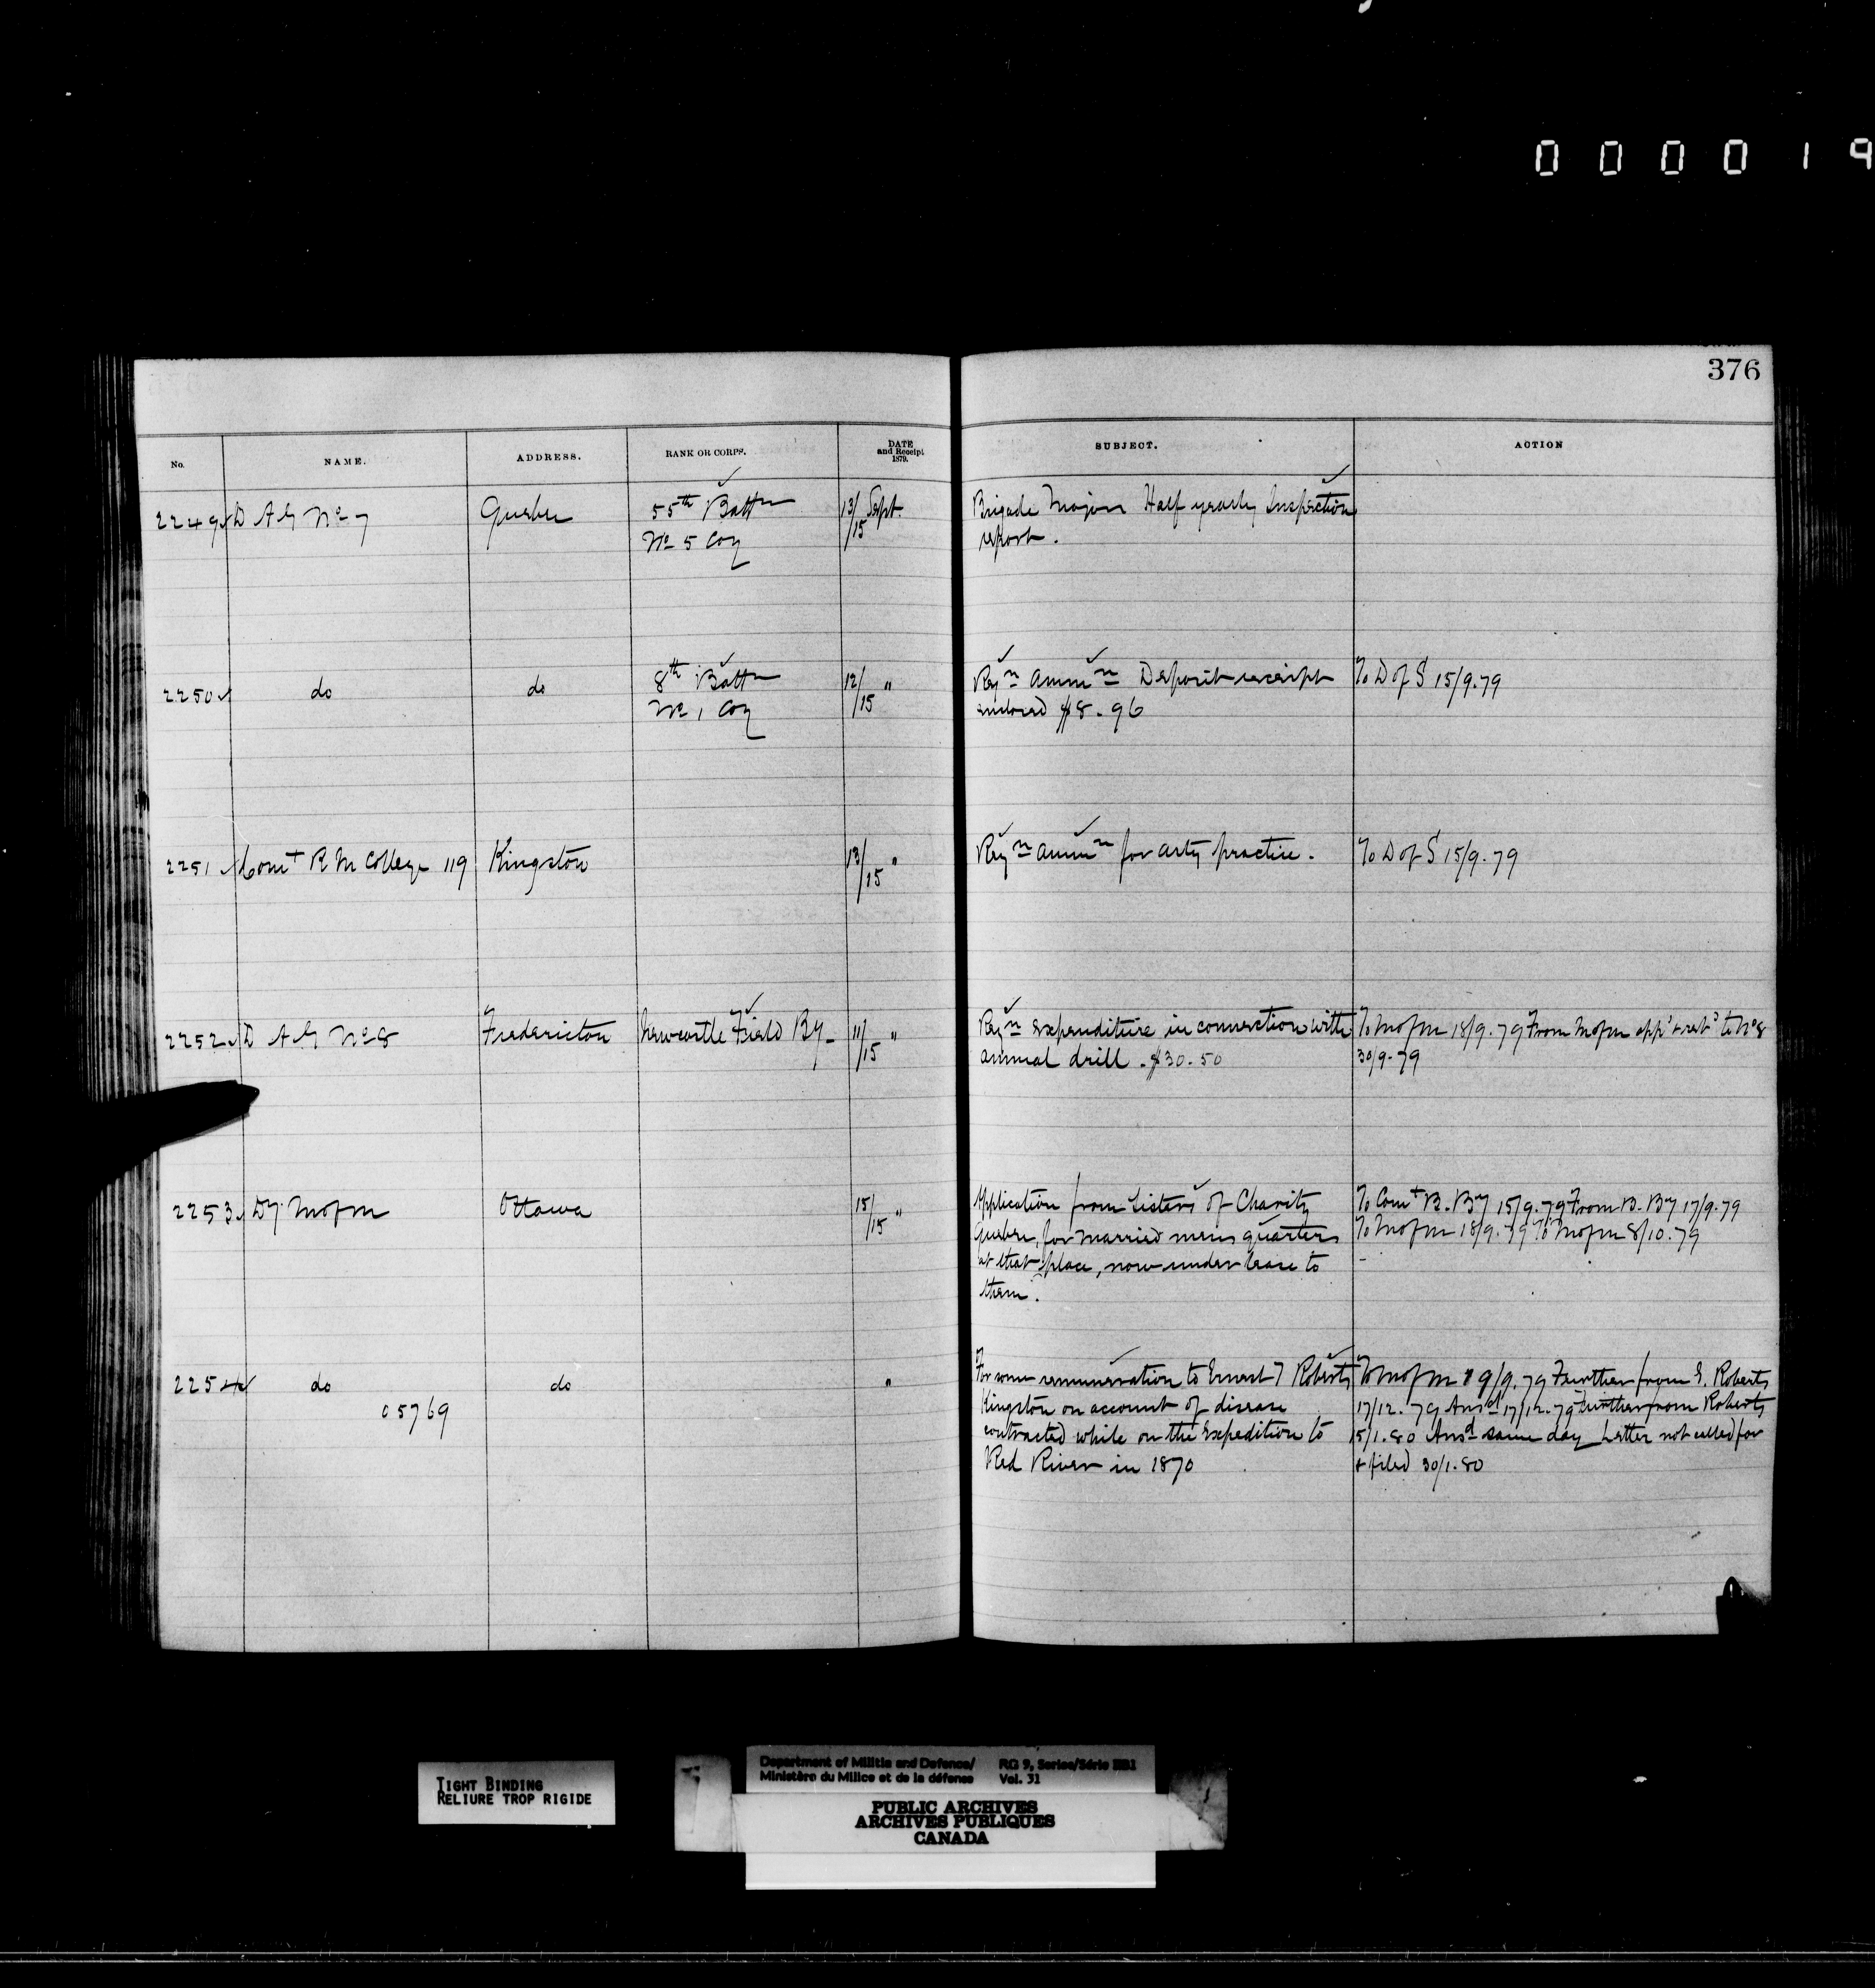 000019
376
No. NAME. ADDRESS. RANK OR CORPS. DATE and Receipt 1879. SUBJECT. ACTION
2249 D A G No 7 Quebec 55th Battn 13/15 Sept. Brigade Majors Half yearly Inspection
No 5 Coy report.
2250 do do 8th Battn 12/15 " Reqn ammn Deposit receipt To D of S 15/9.79
No 1 Coy enclosed $8.96
2251 Comt R M College 119 Kingston 13/15 " Reqn ammn for arty practice. To D of S 15/9.79
2252 D A G No 8 Fredericton Newcastle Field By 11/15 " Reqn expenditure in connection with To M of M 18/9.79 From M of M appd & retd to No 8
annual drill. $30.50 30/9.79
2253 Dy M of M Ottawa 15/15 " Application from Sisters of Charity To Comt B. By 15/9.79 From B. By 17/9.79
Quebec, for married mens quarters To M of M 18/9.79 To M of M 8/10.79
at that place, now under lease to
them.
2254 do do " For some remuneration to Ernest T Roberts To M of M 19/9.79 Further from E. Roberts
05769 Kingston on account of disease 17/12.79 Ansd 17/12.79 Further from Roberts
contracted while on the Expedition to 15/1.80 Ansd same day Letter not called for
Red River in 1870 & filed 30/1.80
TIGHT BINDING
RELIURE TROP RIGIDE
Department of Militia and Defence/ RG 9, Series/Série IIB1
Ministère du Milice et de la défense Vol. 31
PUBLIC ARCHIVES
ARCHIVES PUBLIQUES
CANADA